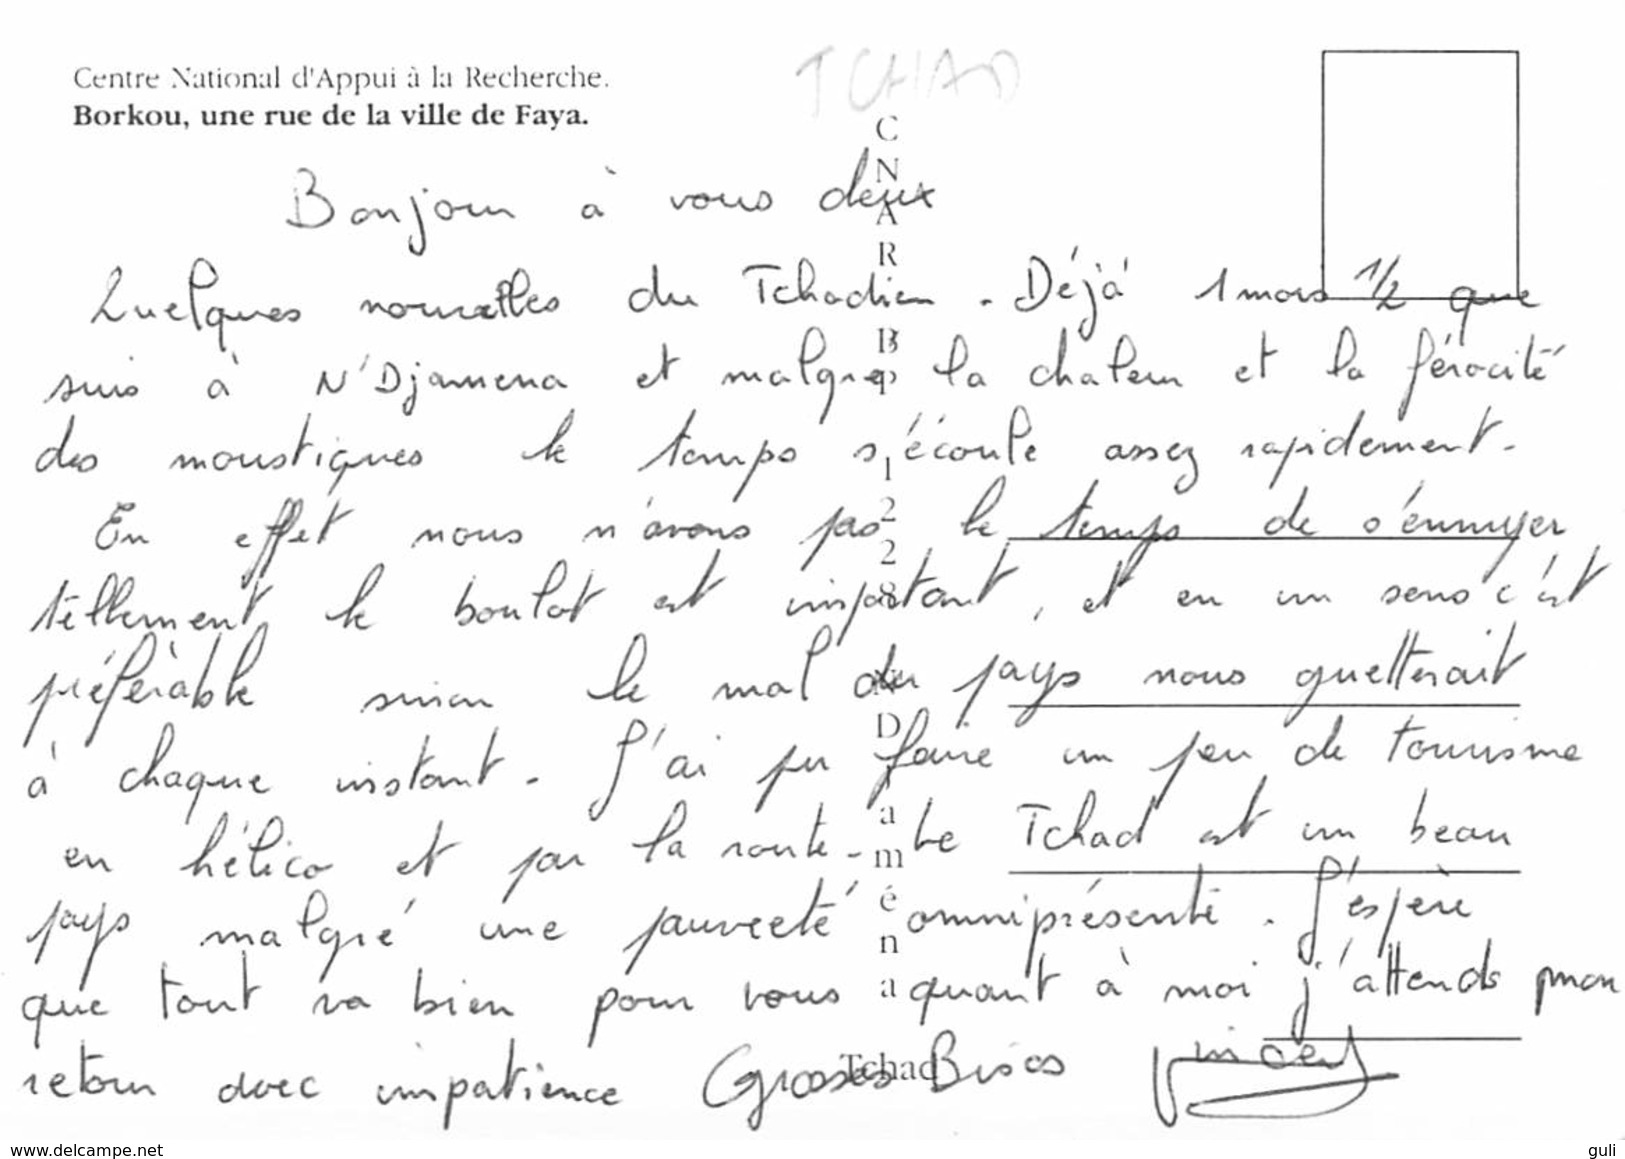 TCHAD
Centre National d'Appui à la Recherche.
Borkou, une rue de la ville de Faya.
CNAR BP 1228 N'Djaména Tchad
Bonjour à vous deux
Quelques nouvelles du Tchadien. Déjà 1 mois 1/2 que
suis à N'Djamena et malgré la chaleur et la férocité
des moustiques le temps s'écoule assez rapidement.
En effet nous n'avons pas le temps de s'ennuyer
tellement le boulot est important, et en un sens c'est
préférable sinon le mal du pays nous guetterait
à chaque instant. J'ai pu faire un peu de tourisme
en hélico et par la route. Le Tchad est un beau
pays malgré une pauvreté omniprésente. J'espère
que tout va bien pour vous quant à moi j'attends mon
retour avec impatience Grosses Bises Vincent
www.delcampe.net
guli